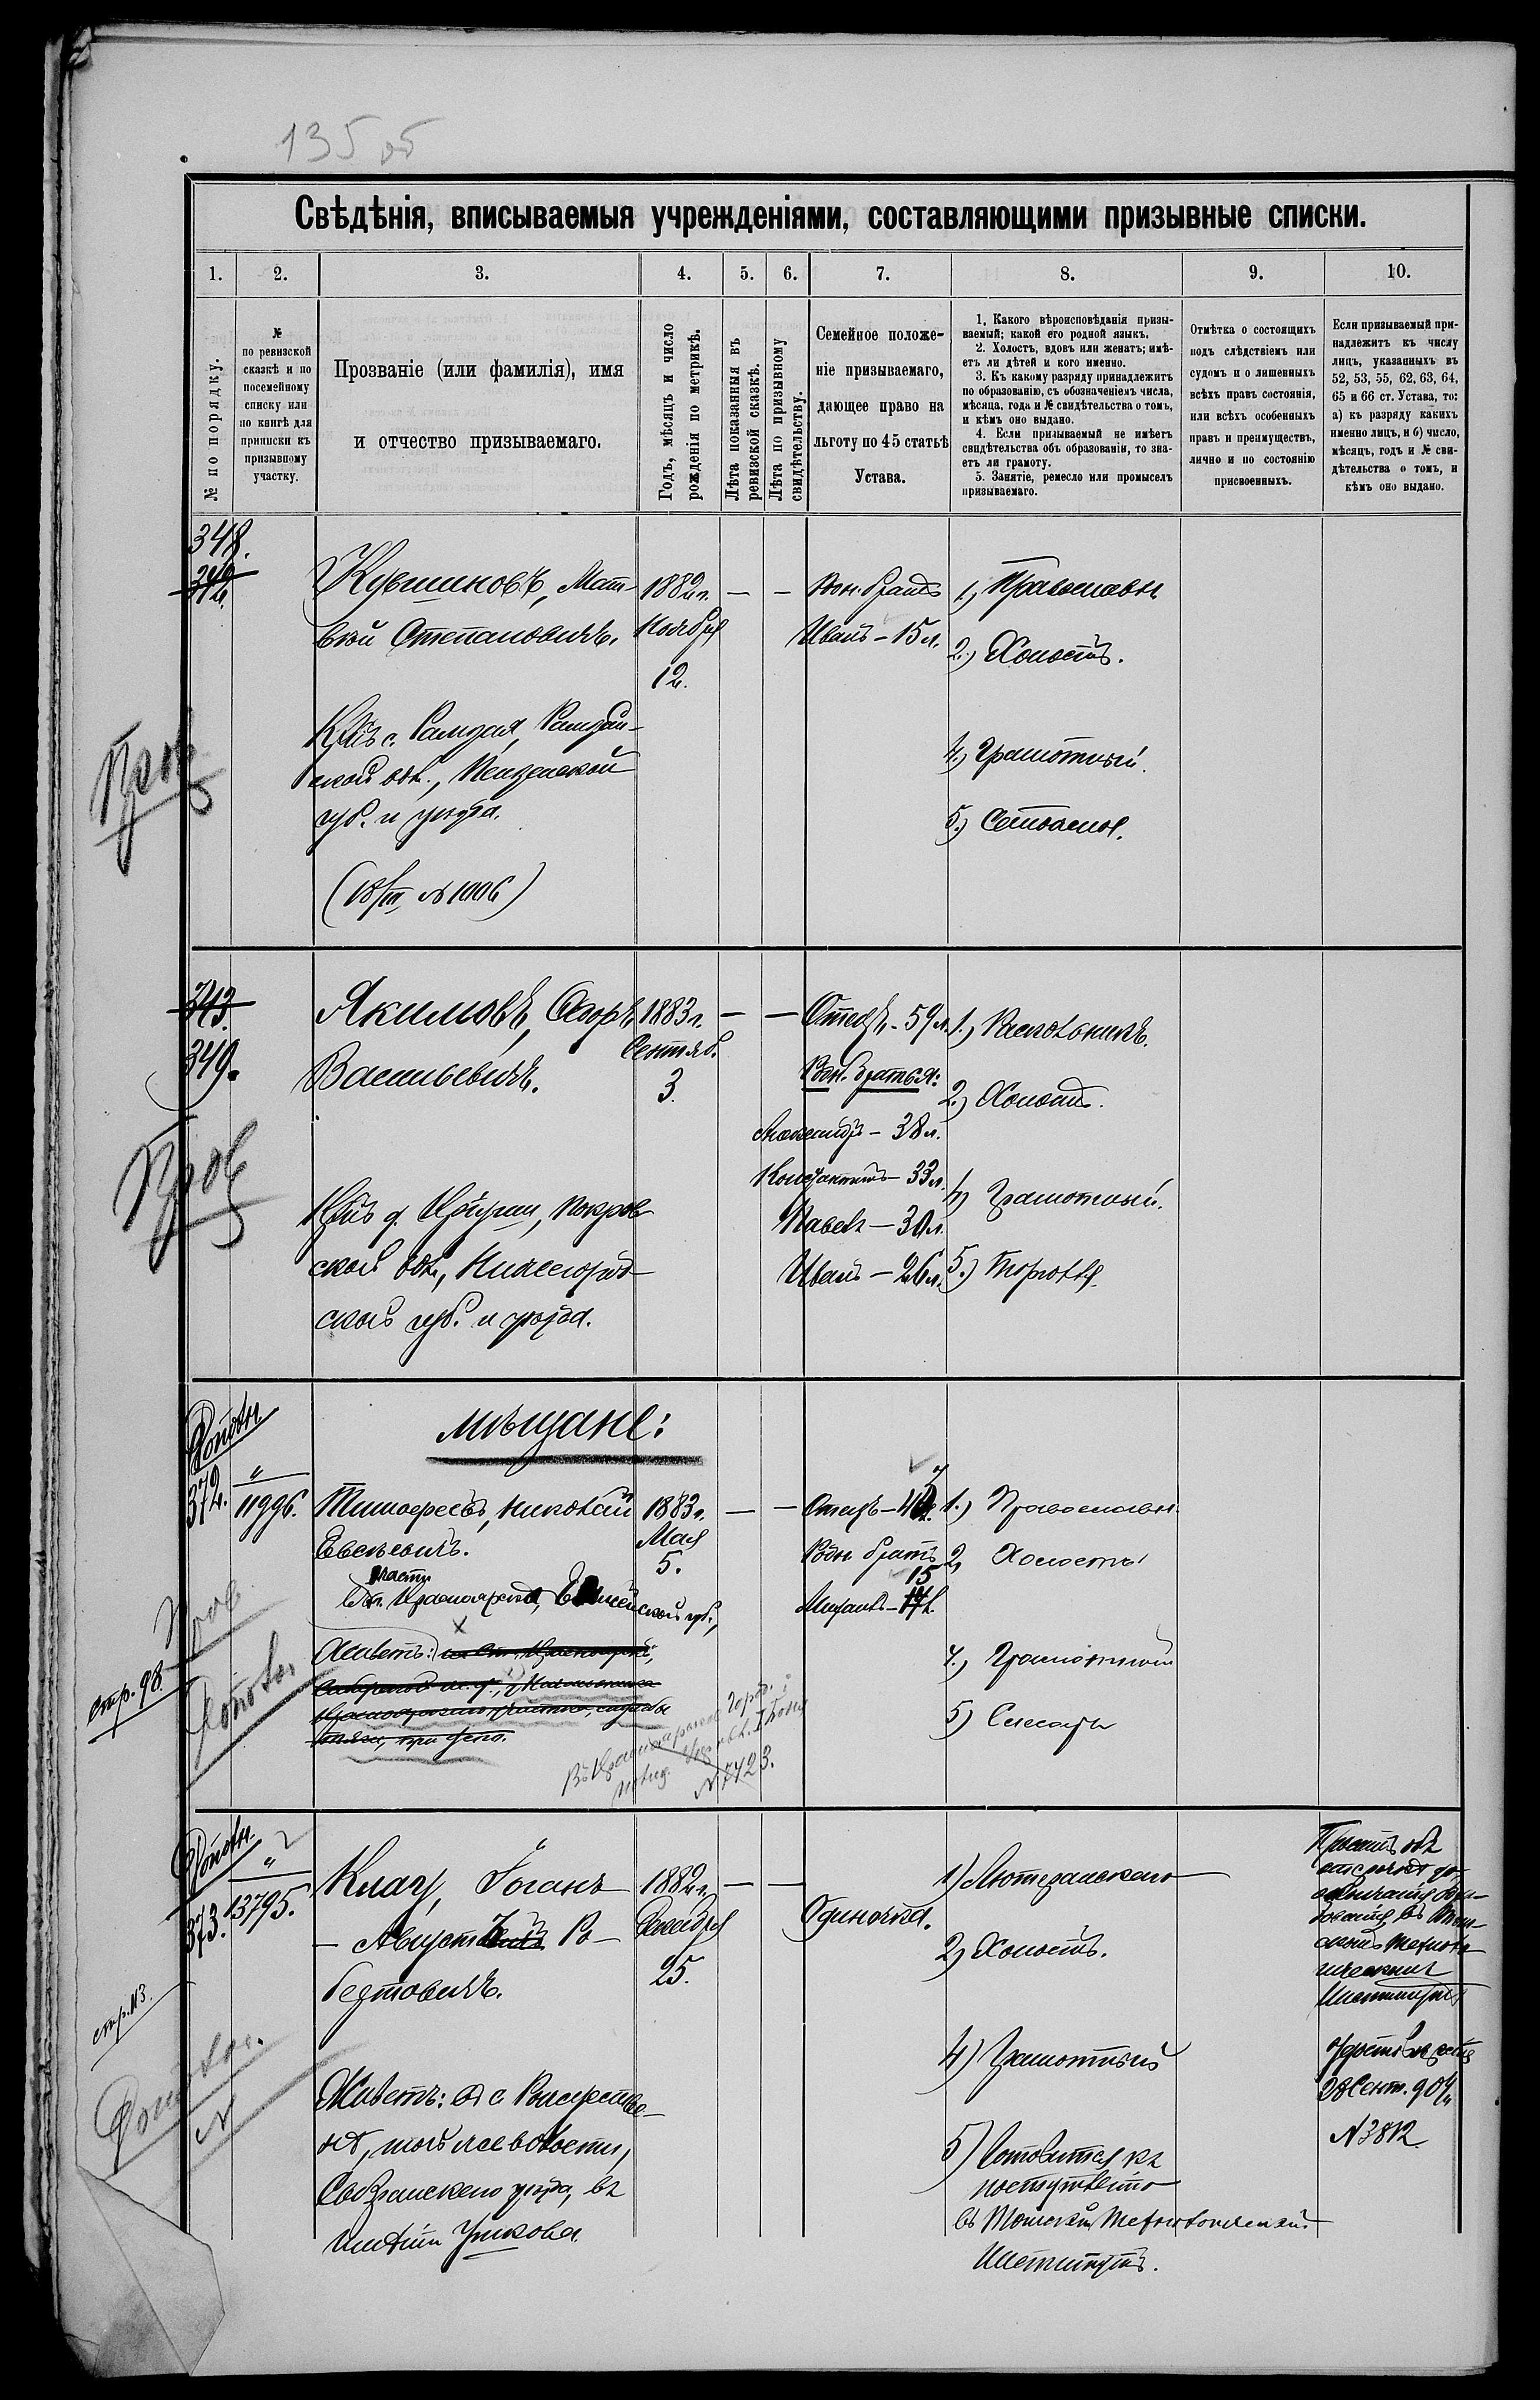 135 об
Свѣдѣнія, вписываемыя учрежденіями, составляющими призывные списки.
1. 2. 3. 4. 5. 6. 7. 8. 9. 10.
№ по порядку.
№
по ревизской
сказкѣ и по
посемейному
списку или
по книгѣ для
приписки къ
призывному
участку.
Прозваніе (или фамилія), имя
и отчество призываемаго.
Годъ, мѣсяцъ и число
рожденія по метрикѣ.
Лѣта показанныя въ
ревизской сказкѣ.
Лѣта по призывному
свидѣтельству.
Семейное положе-
ніе призываемаго,
дающее право на
льготу по 45 статьѣ
Устава.
1. Какого вѣроисповѣданія призы-
ваемый; какой его родной языкъ.
2. Холостъ, вдовъ или женатъ; имѣ-
етъ ли дѣтей и кого именно.
3. Къ какому разряду принадлежитъ
по образованію, съ обозначеніемъ числа,
мѣсяца, года и № свидѣтельства о томъ,
и кѣмъ оно выдано.
4. Если призываемый не имѣетъ
свидѣтельства объ образованіи, то зна-
етъ ли грамоту.
5. Занятіе, ремесло или промыселъ
призываемаго.
Отмѣтка о состоящихъ
подъ слѣдствіемъ или
судомъ и о лишенныхъ
всѣхъ правъ состоянія,
или всѣхъ особенныхъ
правъ и преимуществъ,
лично и по состоянію
присвоенныхъ.
Если призываемый при-
надлежитъ къ числу
лицъ, указанныхъ въ
52, 53, 55, 62, 63, 64,
65 и 66 ст. Устава, то:
а) къ разряду какихъ
именно лицъ, и б) число,
мѣсяцъ, годъ и № сви-
дѣтельства о томъ, и
кѣмъ оно выдано.
348.
342.
Мат-
вѣй Степановичъ.
1882 г.
Ноября
12.
— —
Родн. братъ
Иванъ – 15 л.
1) Православн.
2) Холостъ.
4) Грамотный.
5)
Кр-нъ с. Рамзая, Рамзай-
ской вол., Пензенской
губ. и уѣзда.
(18/III № 1006)
Пров
343.
349.
Якимовъ, Ѳедоръ
Васильевичъ.
1883 г.
Сентяб.
3.
— —
Отецъ – 59 л.
Родн. братья:
Александръ – 38 л.
Константинъ – 33 л.
Павелъ – 30 л.
Иванъ – 26 л.
1)
2) Холостъ.
4) Грамотный.
5) Торговля.
Покров-
ской вол., Нижегород-
ской губ. и уѣзда.
Пров
мѣщане:
372.
"
11996.
Тимоѳеевъ, Николай
Евсѣевичъ.
1883 г.
Мая
5.
— —
Отецъ –
Родн. братъ
15
Михаилъ –
1.) Православн.
2) Холостъ
4.) Грамотный
5) Слесарь
Красноярска, Енисейской губ.,
Живетъ:
№ 7423.
Пров
стр. 98.
373.
"
13795.
Клау, Іоганъ
– Августъ Ро-
бертовичъ.
1882 г.
Декабря
25.
— —
Одиночка.
1) Лютеранскаго
2) Холостъ.
4) Грамотный
5) Готовится къ
поступленію
въ Томскій Технологическій
Институтъ.
Живетъ: въ с. Рождествен-
нѣ, той же волости,
Сызранскаго уѣзда, въ
имѣніи Ушкова.
28 Сент. 904 г.
№ 3812.
стр. 113.